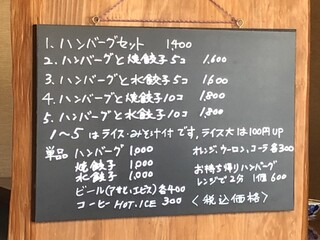 1. ハンバーグセット 1400
2. ハンバーグと焼餃子5コ 1.600
3. ハンバーグと水餃子5コ 1600
4. ハンバーグと焼餃子10コ 1.800
5. ハンバーグと水餃子10コ 1.800
1〜5はライス・みそ汁付です,ライス大は100円UP
単品 ハンバーグ 1,000
焼餃子 1,000
水餃子 1,000
ビール(アサヒ,エビス)各400
コーヒー HOT.ICE 300
オレンジ、ウーロン、コーラ各300
お持ち帰りハンバーグ
レンジで2分 1個600
<税込価格>